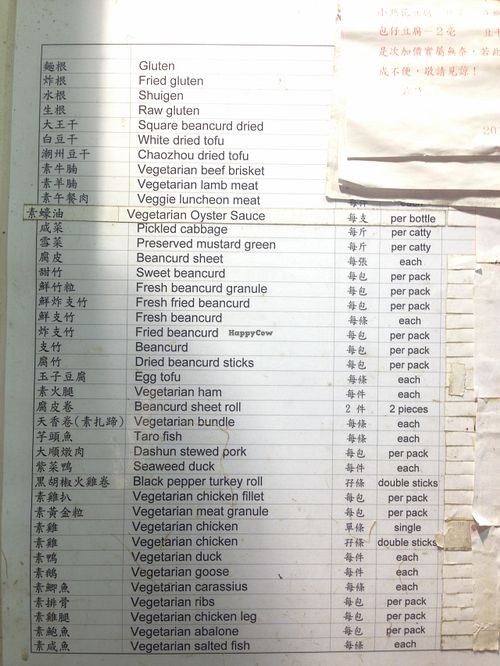 包仔豆腐—2毫
是次加價實屬無奈,若此
成不便,敬請見諒!
20
麵根 Gluten
炸根 Fried gluten
水根 Shuigen
生根 Raw gluten
大王干 Square beancurd dried
白豆干 White dried tofu
潮州豆干 Chaozhou dried tofu
素牛腩 Vegetarian beef brisket
素羊腩 Vegetarian lamb meat
素午餐肉 Veggie luncheon meat 每件 each
素蠔油 Vegetarian Oyster Sauce 每支 per bottle
咸菜 Pickled cabbage 每斤 per catty
雪菜 Preserved mustard green 每斤 per catty
腐皮 Beancurd sheet 每張 each
甜竹 Sweet beancurd 每包 per pack
鮮竹粒 Fresh beancurd granule 每包 per pack
鮮炸支竹 Fresh fried beancurd 每包 per pack
鮮支竹 Fresh beancurd 每條 each
炸支竹 Fried beancurd HappyCow 每包 per pack
支竹 Beancurd 每包 per pack
腐竹 Dried beancurd sticks 每包 per pack
玉子豆腐 Egg tofu 每條 each
素火腿 Vegetarian ham 每件 each
腐皮卷 Beancurd sheet roll 2 件 2 pieces
天香卷(素扎蹄) Vegetarian bundle 每條 each
芋頭魚 Taro fish 每條 each
大順燉肉 Dashun stewed pork 每包 per pack
紫菜鴨 Seaweed duck 每件 each
黑胡椒火雞卷 Black pepper turkey roll 孖條 double sticks
素雞扒 Vegetarian chicken fillet 每包 per pack
素黃金粒 Vegetarian meat granule 每包 per pack
素雞 Vegetarian chicken 單條 single
素雞 Vegetarian chicken 孖條 double sticks
素鴨 Vegetarian duck 每件 each
素鵝 Vegetarian goose 每件 each
素鯽魚 Vegetarian carassius 每條 each
素排骨 Vegetarian ribs 每包 per pack
素雞腿 Vegetarian chicken leg 每包 per pack
素鮑魚 Vegetarian abalone 每包 per pack
素咸魚 Vegetarian salted fish 每條 each